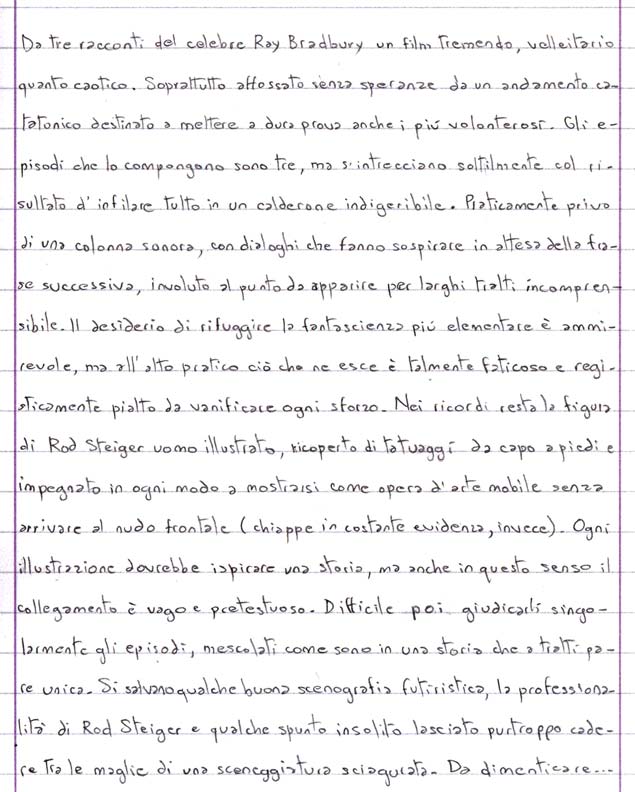 Da tre racconti del celebre Ray Bradbury un film tremendo, velleitario
quanto caotico. Soprattutto affossato senza speranze da un andamento ca-
tatonico destinato a mettere a dura prova anche i più volonterosi. Gli e-
pisodi che lo compongono sono tre, ma s'intrecciano sottilmente col ri-
sultato d'infilare tutto in un calderone indigeribile. Praticamente privo
di una colonna sonora, con dialoghi che fanno sospirare in attesa della fra-
se successiva, involuto al punto da apparire per larghi tratti incompren-
sibile. Il desiderio di rifuggire la fantascienza più elementare è ammi-
revole, ma all'atto pratico ciò che ne esce è talmente faticoso e regi-
sticamente piatto da vanificare ogni sforzo. Nei ricordi resta la figura
di Rod Steiger uomo illustrato, ricoperto di tatuaggi da capo a piedi e
impegnato in ogni modo a mostrarsi come opera d'arte mobile senza
arrivare al nudo frontale (chiappe in costante evidenza, invece). Ogni
illustrazione dovrebbe ispirare una storia, ma anche in questo senso il
collegamento è vago e pretestuoso. Difficile poi giudicarli singo-
larmente gli episodi, mescolati come sono in una storia che a tratti pa-
re unica. Si salvano qualche buona scenografia futiristica, la professiona-
lità di Rod Steiger e qualche spunto insolito lasciato purtroppo cade-
re tra le maglie di una sceneggiatura sciagurata. Da dimenticare...